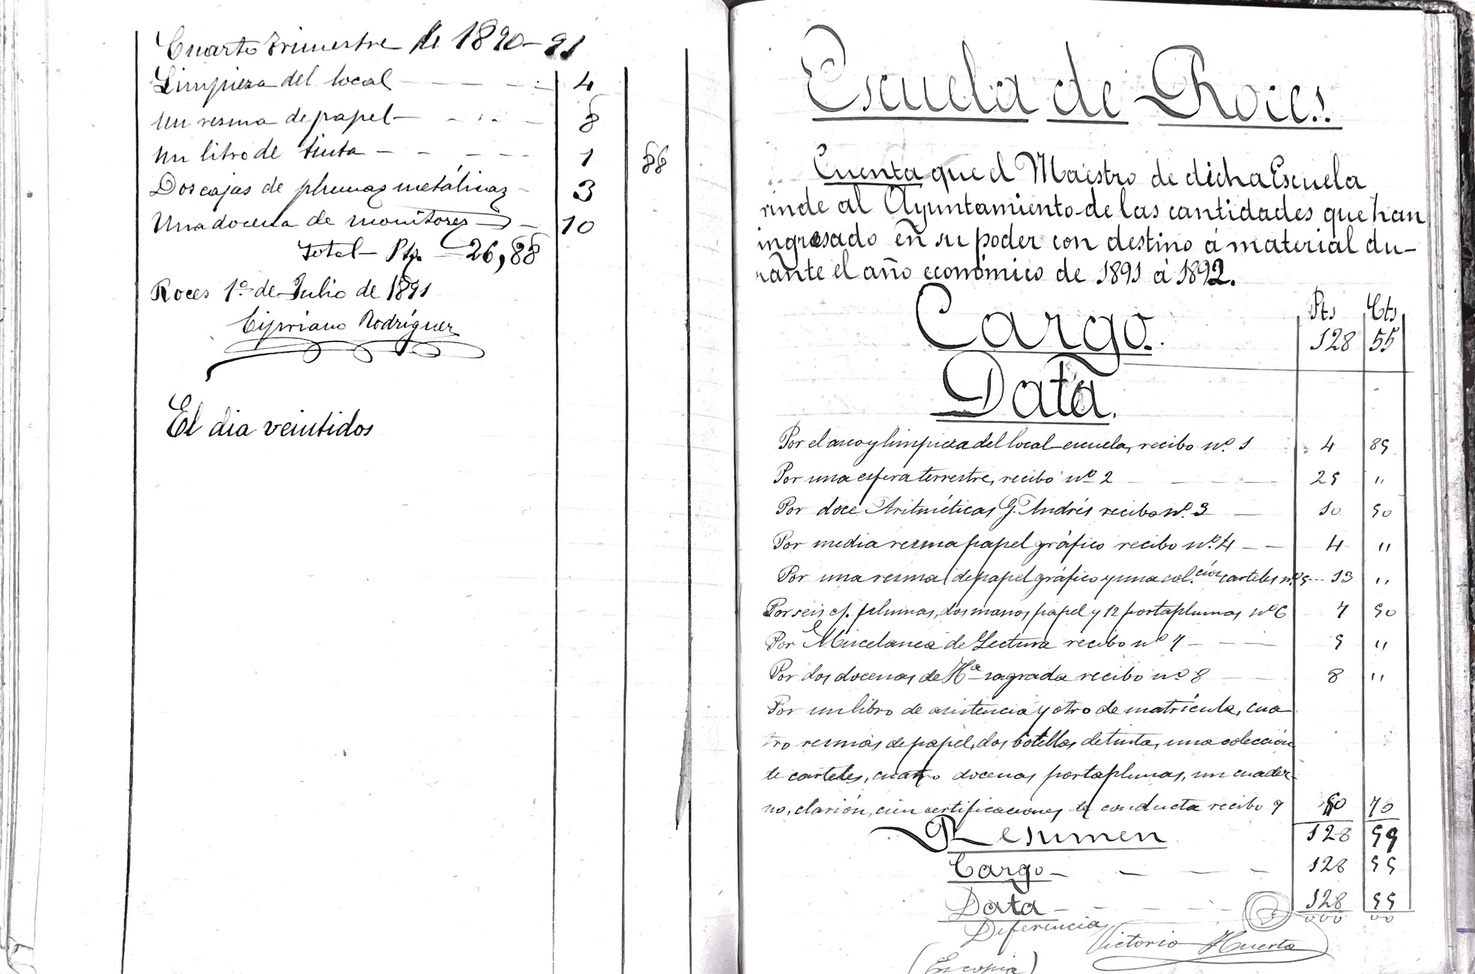 Cuarto trimestre de 1890-91
Limpieza del local 4
Un resma de papel 8
Un libro de tinta 1 88
Dos cajas de plumas metálicas 3
Una docena de monitores 10
Total Pts. 26,88
Roces 1º de Julio de 1891
Cipriano Rodríguez
El dia veintidos
Escuela de Roces.
Cuenta que el Maestro de dicha Escuela
rinde al Ayuntamiento de las cantidades que han
ingresado en su poder con destino á material du-
rante el año económico de 1891 á 1892.
Pts Cts
Cargo. 128 55
Data.
Por el aseo y limpieza del local escuela, recibo nº. 1 4 85
Por una esfera terrestre, recibo nº 2 25 "
Por doce Aritméticas G. Andrés recibo nº. 3 10 50
Por media resma papel gráfico recibo nº. 4 4 "
Por una resma de papel gráfico y una col.ción carteles nº. 5 13 "
Por seis cj. plumas, dos manos papel y 12 portaplumas nº 6 7 50
Por Miscelanea de Lectura recibo nº 7 5 "
Por dos docenas de Hª sagrada recibo nº 8 8 "
Por un libro de asistencia y otro de matrícula, cua
tro resmas de papel, dos botellas de tinta, una colección
de carteles, cuatro docenas portaplumas, un cuader-
no, clarión, cien certificaciones de conducta recibo 9 50 70
Resumen 128 55
Cargo 128 55
Data 128 55
Diferencia 000 00
Victorio Huerta
(Es copia)